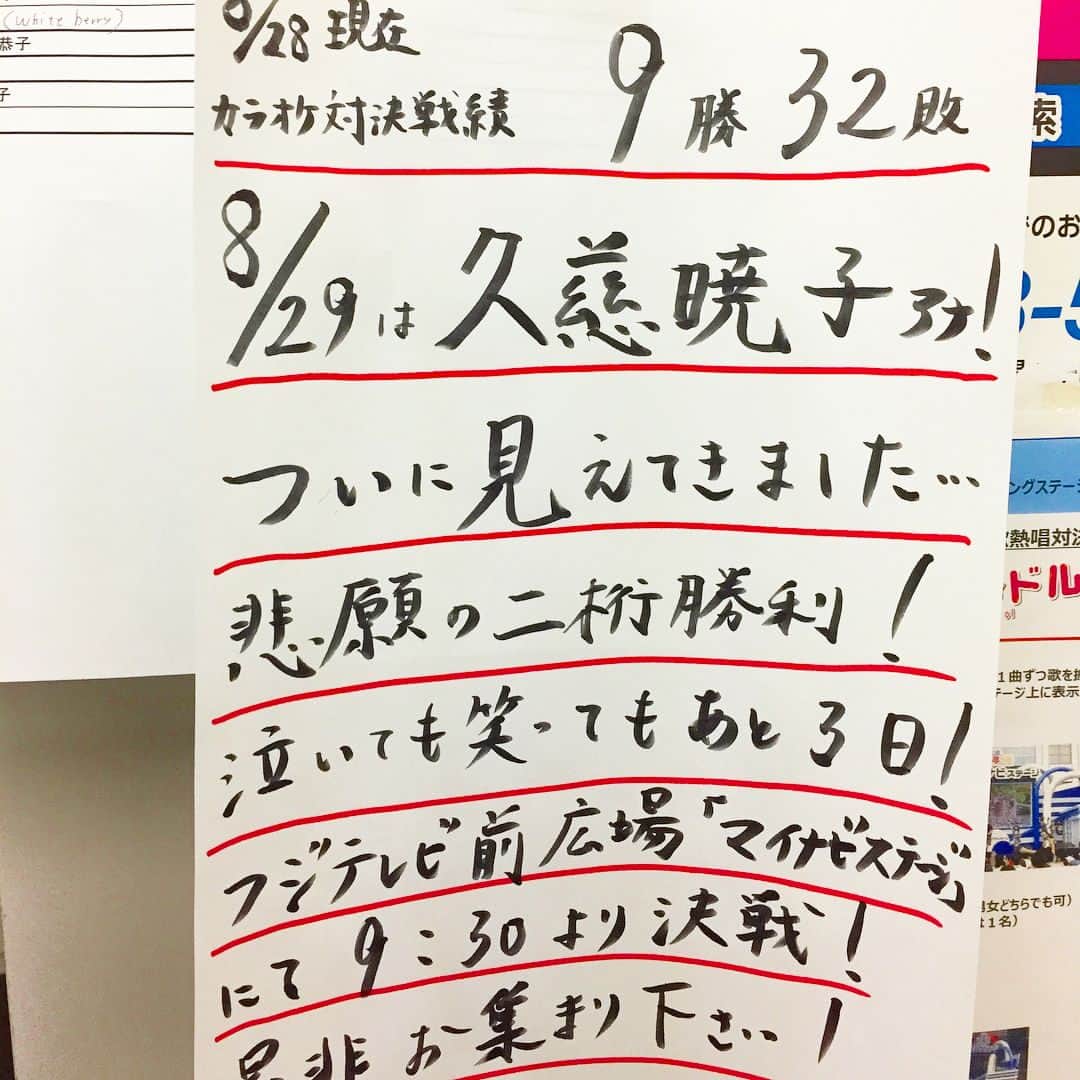 (white berry)
恭子
子
8/28 現在
カラオケ対決戦績 9勝32敗
8/29は久慈暁子アナ!
ついに見えてきました…
悲願の二桁勝利!
泣いても笑ってもあと3日!
フジテレビ前広場「マイナビステージ」
にて9:30より決戦!
是非お集まり下さい!
索
でのお
3-5
ングステージ
熱唱対決
ドル
1曲ずつ歌を
テージ上に表示
ビステージ
男女どちらでも可)
は1名)